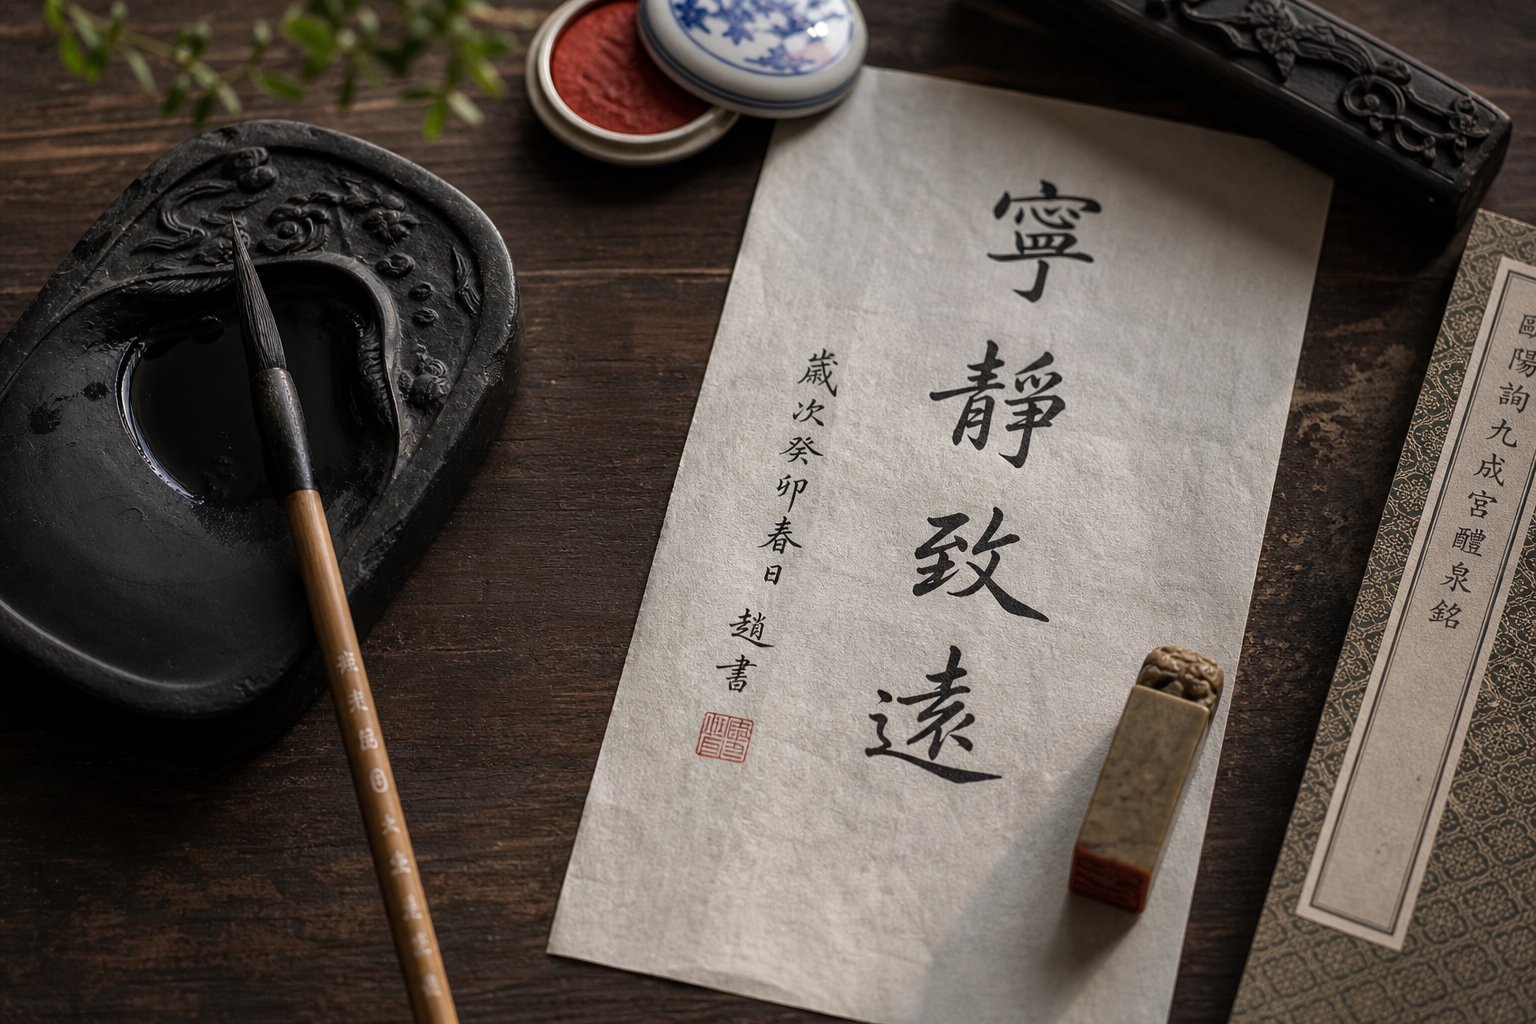 寧靜致遠
歲次癸卯春日 趙書
歐陽詢九成宮醴泉銘